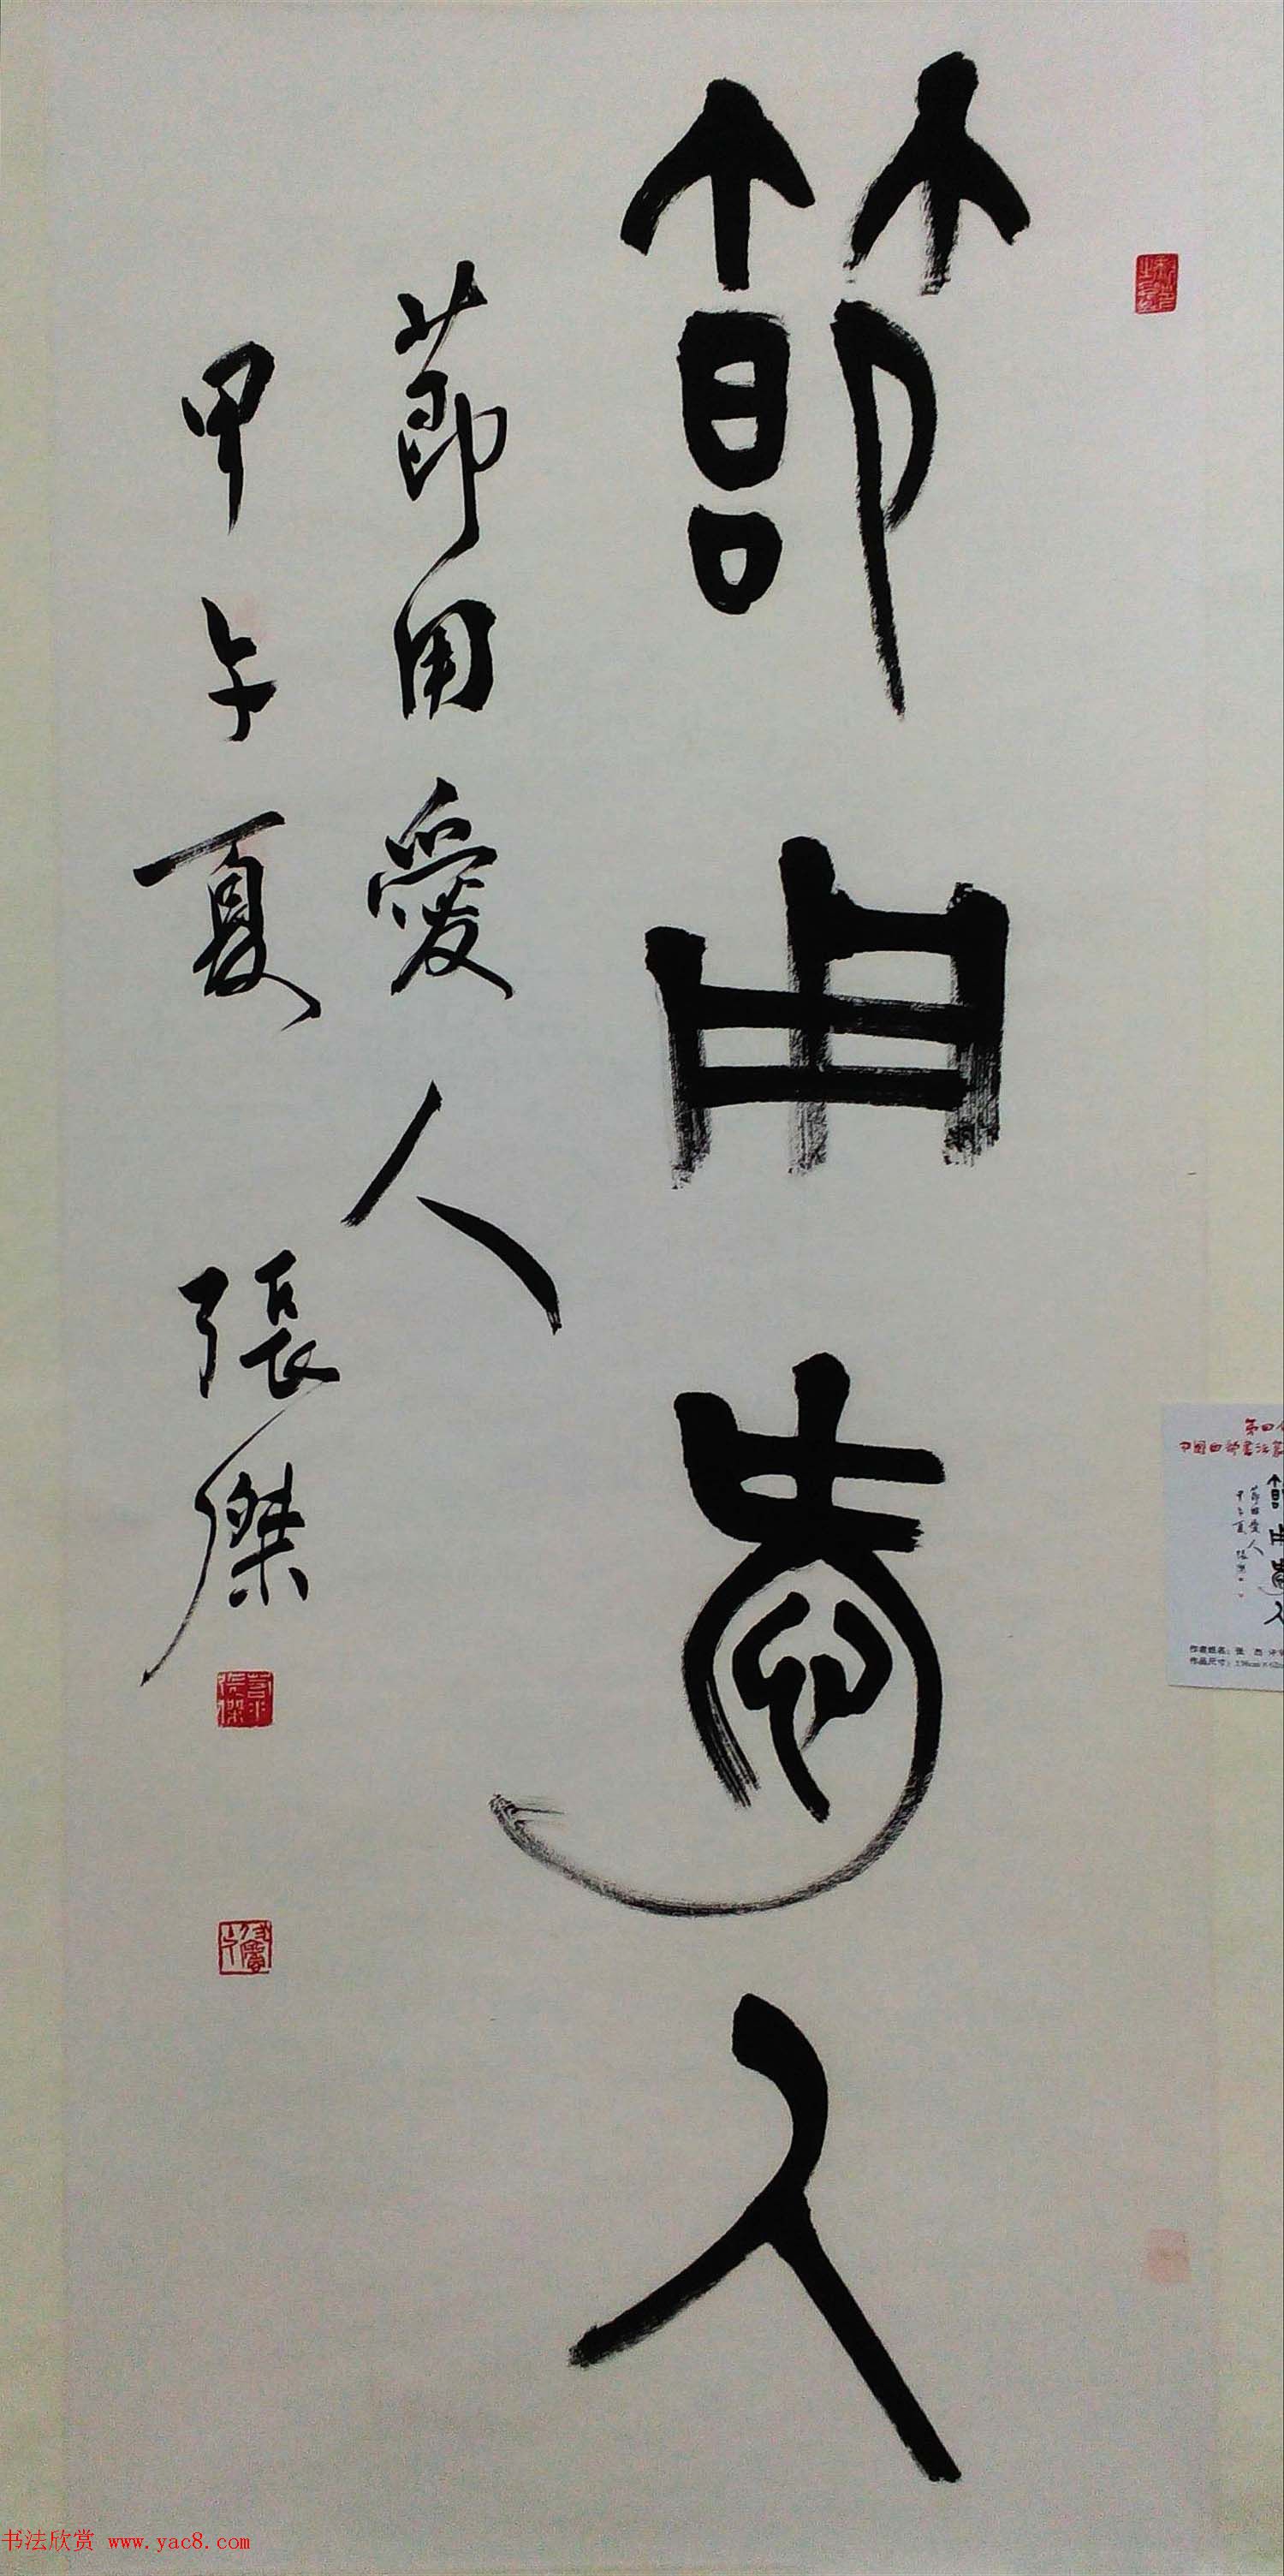 節用愛人
節用愛人
甲午夏 張傑
第四
中國西部書法篆
節用愛人
節用愛人
甲午夏 張傑
作者姓名：张 杰
作品尺寸：138cm×
书法欣赏 www.yac8.com